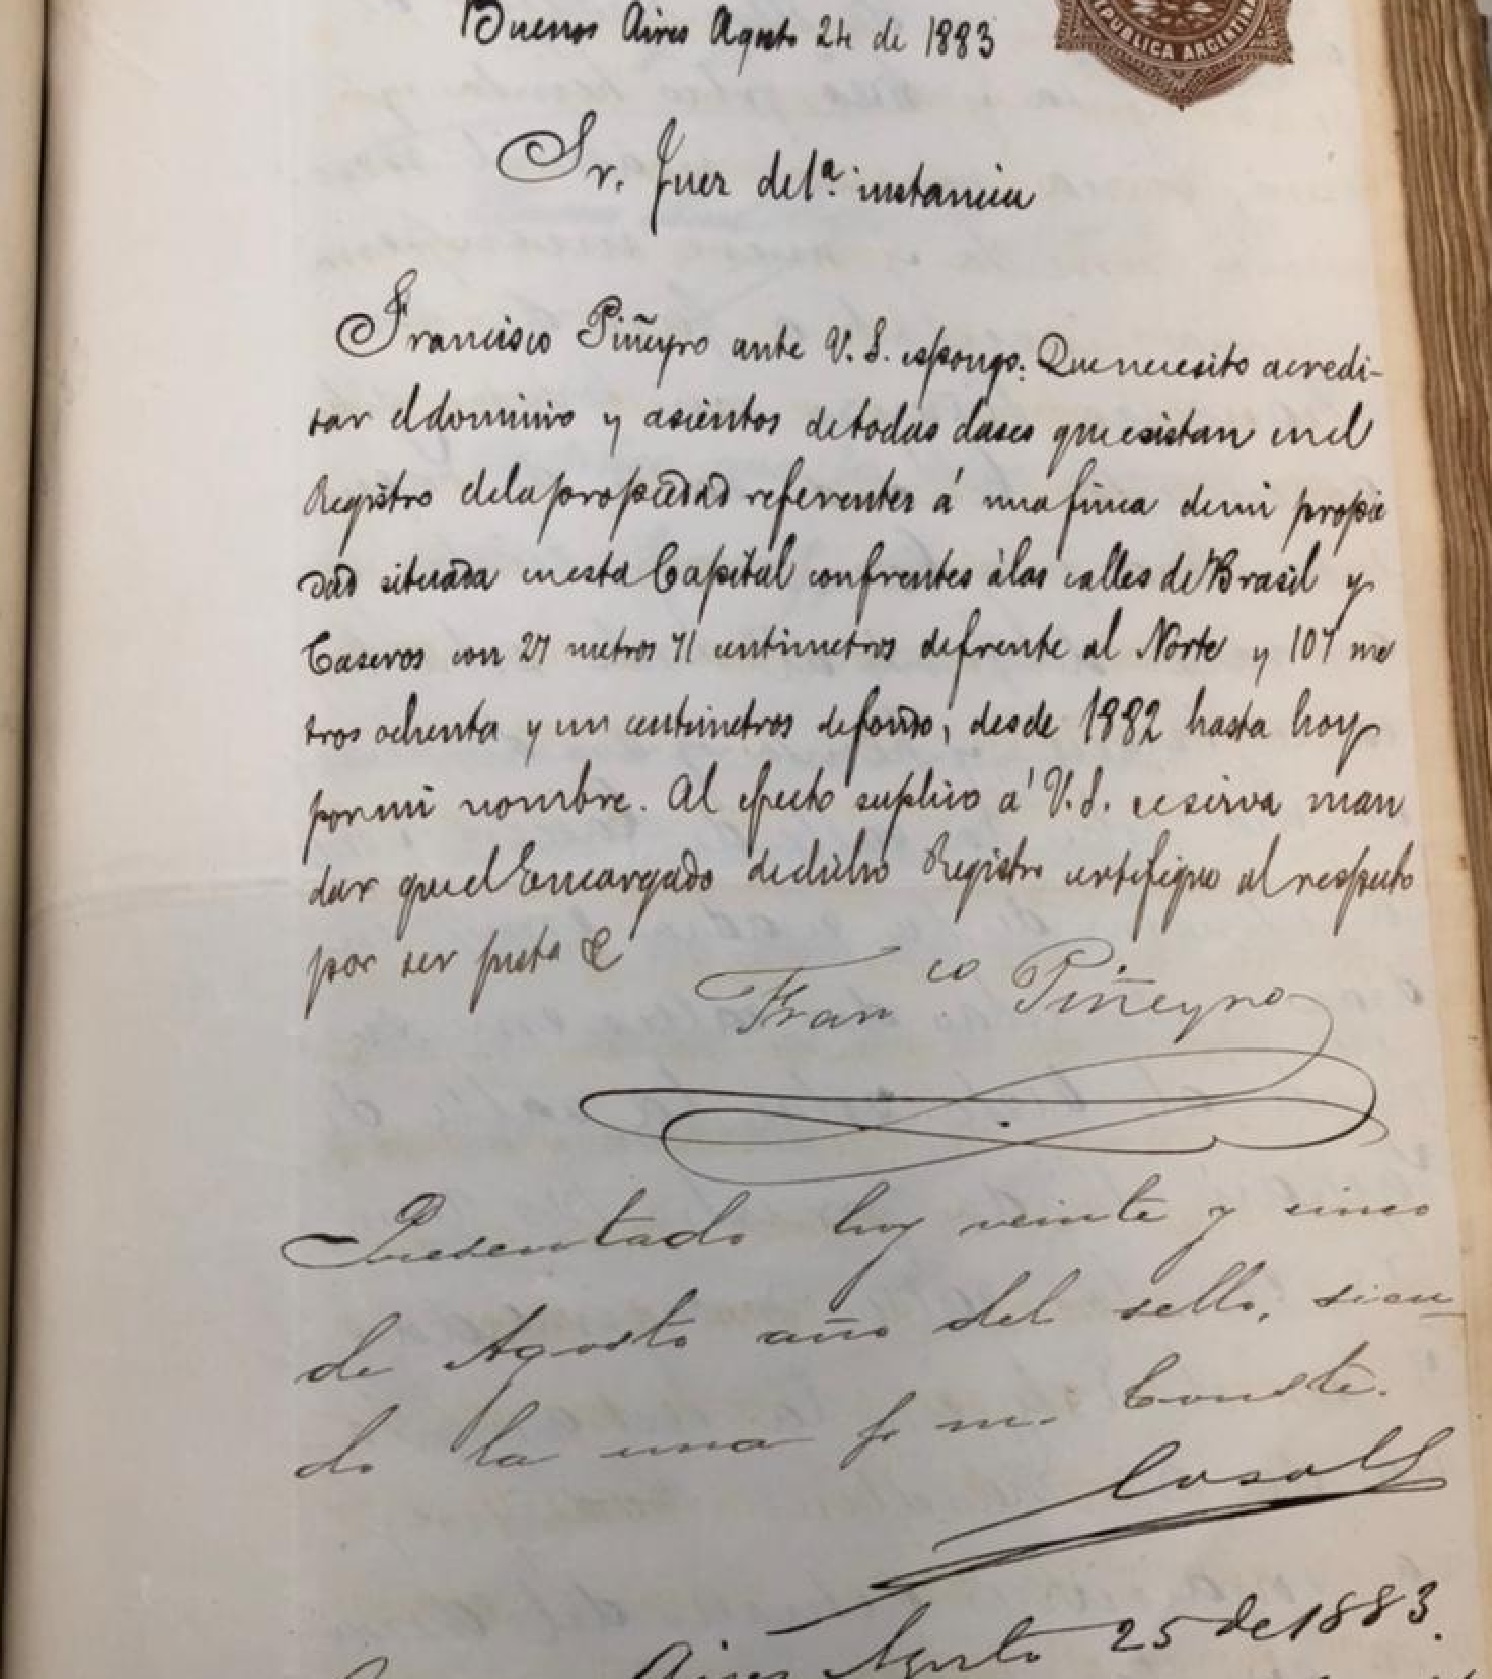 Buenos Aires Agosto 24 de 1883
REPUBLICA ARGENTINA
Sr. Juez de 1ª. instancia
Francisco Piñeyro ante V. S. espongo: Que necesito acredi-
tar el dominio y asientos de todas clases que esistan en el
Registro de la propiedad referentes á una finca de mi propie
dad situada en esta Capital con frentes á las calles de Brasil y
Caseros con 27 metros 71 centimetros de frente al Norte y 107 me
tros ochenta y un centimetros de fondo, desde 1882 hasta hoy
por mi nombre. Al efecto suplico á V. S. se sirva man
dar que el Encargado de dicho Registro certifique al respecto
por ser justa &
Franco Piñeyro
Presentado hoy veinte y cinco
de Agosto año del sello, sien-
do la una p m. Conste.
Casals
Aires Agosto 25 de 1883.